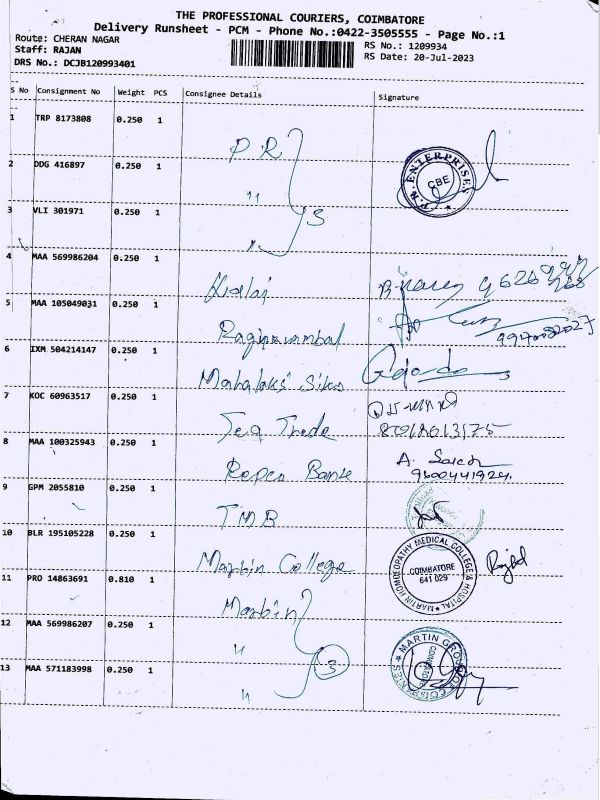 THE PROFESSIONAL COURIERS, COIMBATORE
Delivery Runsheet - PCM - Phone No.:0422-3505555 - Page No.:1
Route: CHERAN NAGAR
Staff: RAJAN
RS No.: 1209934
DRS No.: DCJB120993401
RS Date: 20-Jul-2023
S No Consignment No Weight PCS Consignee Details Signature
1 TRP 8173808 0.250 1 P R
2 DDG 416897 0.250 1 "
P.N. ENTERPRISES CBE
3 VLI 301971 0.250 1 " 3
4 MAA 569986204 0.250 1 Kalai
5 MAA 105049031 0.250 1
6 IXM 504214147 0.250 1
7 KOC 60963517 0.250 1 Tea Trade
8 MAA 100325943 0.250 1 Repco Bank
9600441924
9 GPM 2055810 0.250 1 TMB
10 BLR 195105228 0.250 1 Martin College
MARTIN HOMOEOPATHY MEDICAL COLLEGE & HOSPITAL COIMBATORE 641 029
11 PRO 14863691 0.810 1 Martin
12 MAA 569986207 0.250 1 "
3
MARTIN GROUP COMPANIES
13 MAA 571183998 0.250 1 "